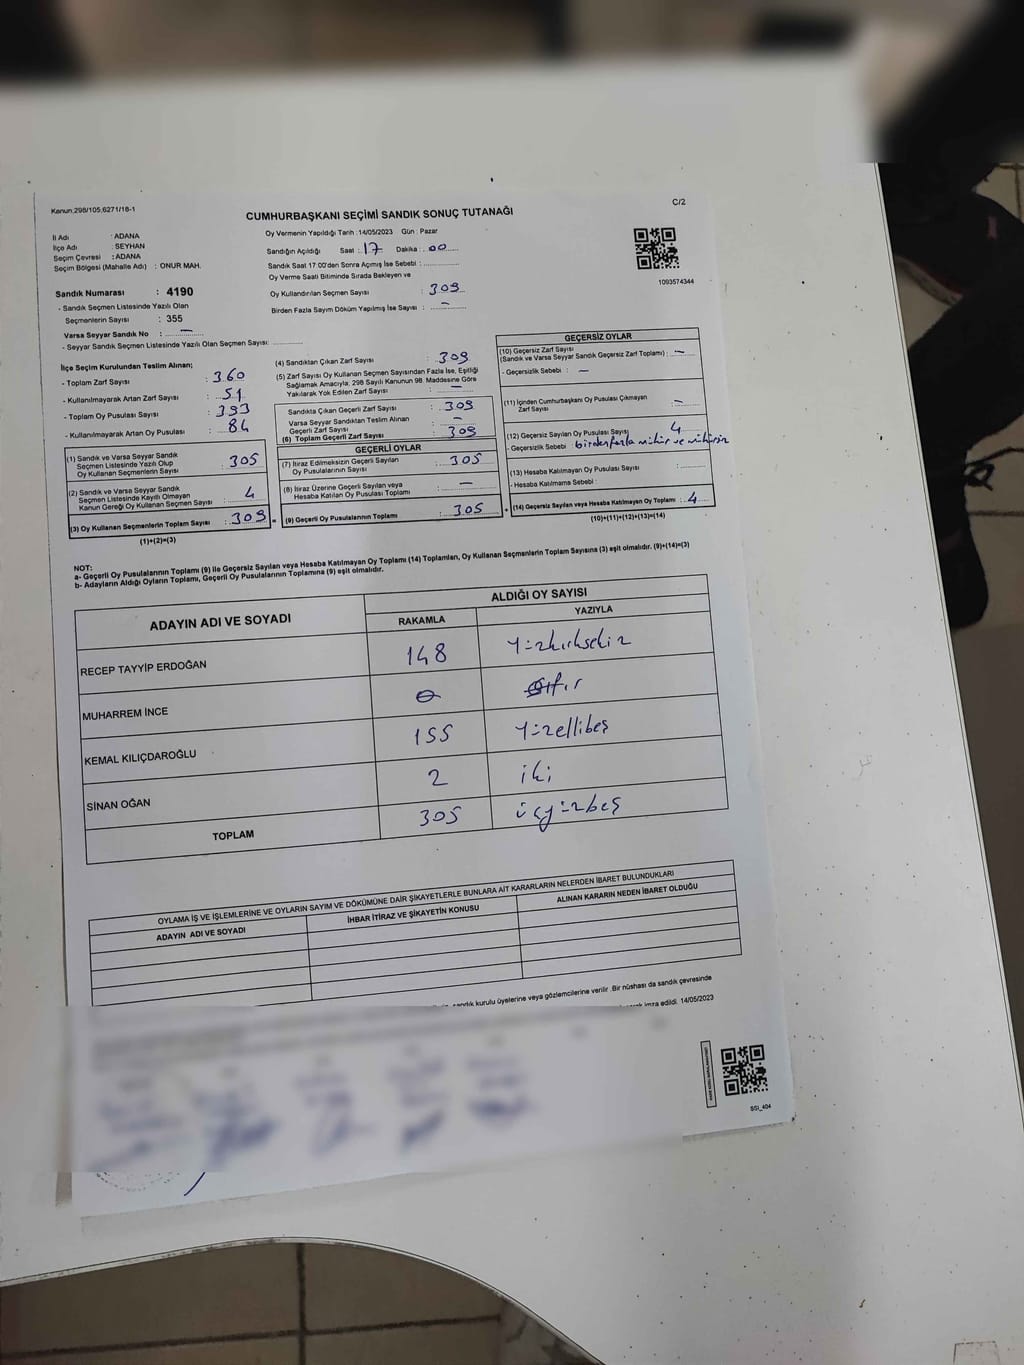 Kanun,298/105,6271/18-1
C/2
CUMHURBAŞKANI SEÇİMİ SANDIK SONUÇ TUTANAĞI
İl Adı : ADANA
İlçe Adı : SEYHAN
Seçim Çevresi : ADANA
Seçim Bölgesi (Mahalle Adı) : ONUR MAH.
Oy Vermenin Yapıldığı Tarih :14/05/2023 Gün : Pazar
Sandığın Açıldığı Saat : 17 Dakika : 00
Sandık Saat 17:00'den Sonra Açımış İse Sebebi :
Oy Verme Saati Bitiminde Sırada Bekleyen ve
Oy Kullandırılan Seçmen Sayısı : 309
Birden Fazla Sayım Döküm Yapılmış İse Sayısı : –
1093574344
Sandık Numarası : 4190
- Sandık Seçmen Listesinde Yazılı Olan
Seçmenlerin Sayısı : 355
Varsa Seyyar Sandık No : –
- Seyyar Sandık Seçmen Listesinde Yazılı Olan Seçmen Sayısı:
İlçe Seçim Kurulundan Teslim Alınan;
- Toplam Zarf Sayısı : 360
- Kullanılmayarak Artan Zarf Sayısı : 51
- Toplam Oy Pusulası Sayısı : 393
- Kullanılmayarak Artan Oy Pusulası : 84
(1) Sandık ve Varsa Seyyar Sandık
Seçmen Listesinde Yazılı Olup
Oy Kullanan Seçmenlerin Sayısı : 305
(2) Sandık ve Varsa Seyyar Sandık
Seçmen Listesinde Kayıtlı Olmayan
Kanun Gereği Oy Kullanan Seçmen Sayısı : 4
(3) Oy Kullanan Seçmenlerin Toplam Sayısı : 309
(1)+(2)=(3)
(4) Sandıktan Çıkan Zarf Sayısı : 309
(5) Zarf Sayısı Oy Kullanan Seçmen Sayısından Fazla İse, Eşitliği
Sağlamak Amacıyla; 298 Sayılı Kanunun 98. Maddesine Göre
Yakılarak Yok Edilen Zarf Sayısı : –
Sandıkta Çıkan Geçerli Zarf Sayısı : 309
Varsa Seyyar Sandıktan Teslim Alınan
Geçerli Zarf Sayısı : –
(6) Toplam Geçerli Zarf Sayısı : 309
GEÇERLİ OYLAR
(7) İtiraz Edilmeksizin Geçerli Sayılan
Oy Pusulalarının Sayısı : 305
(8) İtiraz Üzerine Geçerli Sayılan veya
Hesaba Katılan Oy Pusulası Toplamı : –
(9) Geçerli Oy Pusulalarının Toplamı : 305
GEÇERSİZ OYLAR
(10) Geçersiz Zarf Sayısı
(Sandık ve Varsa Seyyar Sandık Geçersiz Zarf Toplamı) : –
- Geçersizlik Sebebi : –
(11) İçinden Cumhurbaşkanı Oy Pusulası Çıkmayan
Zarf Sayısı : –
(12) Geçersiz Sayılan Oy Pusulası Sayısı : 4
- Geçersizlik Sebebi : birden fazla mühür ve mühürsüz
(13) Hesaba Katılmayan Oy Pusulası Sayısı :
- Hesaba Katılmama Sebebi :
(14) Geçersiz Sayılan veya Hesaba Katılmayan Oy Toplamı : 4
(10)+(11)+(12)+(13)=(14)
NOT:
a- Geçerli Oy Pusulalarının Toplamı (9) ile Geçersiz Sayılan veya Hesaba Katılmayan Oy Toplamı (14) Toplamları, Oy Kullanan Seçmenlerin Toplam Sayısına (3) eşit olmalıdır. (9)+(14)=(3)
b- Adayların Aldığı Oyların Toplamı, Geçerli Oy Pusulalarının Toplamına (9) eşit olmalıdır.
ADAYIN ADI VE SOYADI
ALDIĞI OY SAYISI
RAKAMLA YAZIYLA
RECEP TAYYİP ERDOĞAN 148 Yüzkırksekiz
MUHARREM İNCE 0 sıfır
KEMAL KILIÇDAROĞLU 155 Yüzellibeş
SİNAN OĞAN 2 iki
TOPLAM 305 üçyüzbeş
OYLAMA İŞ VE İŞLEMLERİNE VE OYLARIN SAYIM VE DÖKÜMÜNE DAİR ŞİKAYETLERLE BUNLARA AİT KARARLARIN NELERDEN İBARET BULUNDUKLARI
ADAYIN ADI VE SOYADI İHBAR İTİRAZ VE ŞİKAYETİN KONUSU ALINAN KARARIN NEDEN İBARET OLDUĞU
sandık kurulu üyelerine veya gözlemcilerine verilir .Bir nüshası da sandık çevresinde
imza edildi. 14/05/2023
SSİ_404